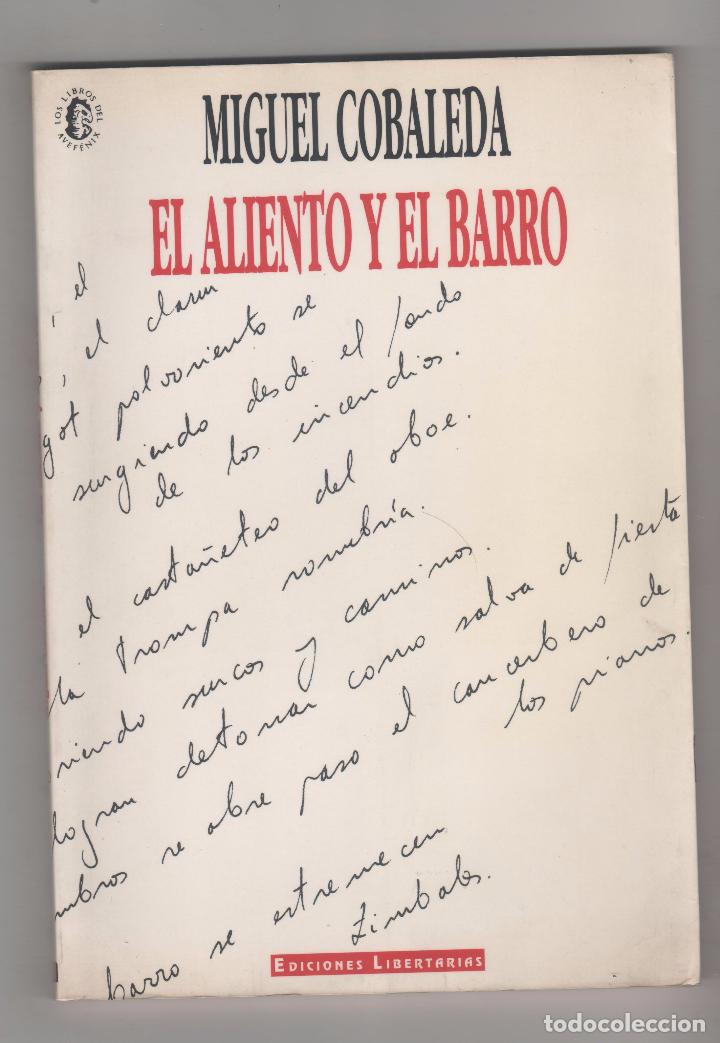 LOS LIBROS DEL AVEFÉNIX
MIGUEL COBALEDA
EL ALIENTO Y EL BARRO
, el
, el clarín
got polvoriento se
surgiendo desde el fondo
de los incendios.
el castañeteo del oboe.
la trompa sombría.
riendo surcos y caminos.
logran detonar como salva de fiesta
mbros se abre paso el cancerbero de
los pianos.
barro se estremecen
zimbales.
EDICIONES LIBERTARIAS
todocoleccion
todocoleccion.net